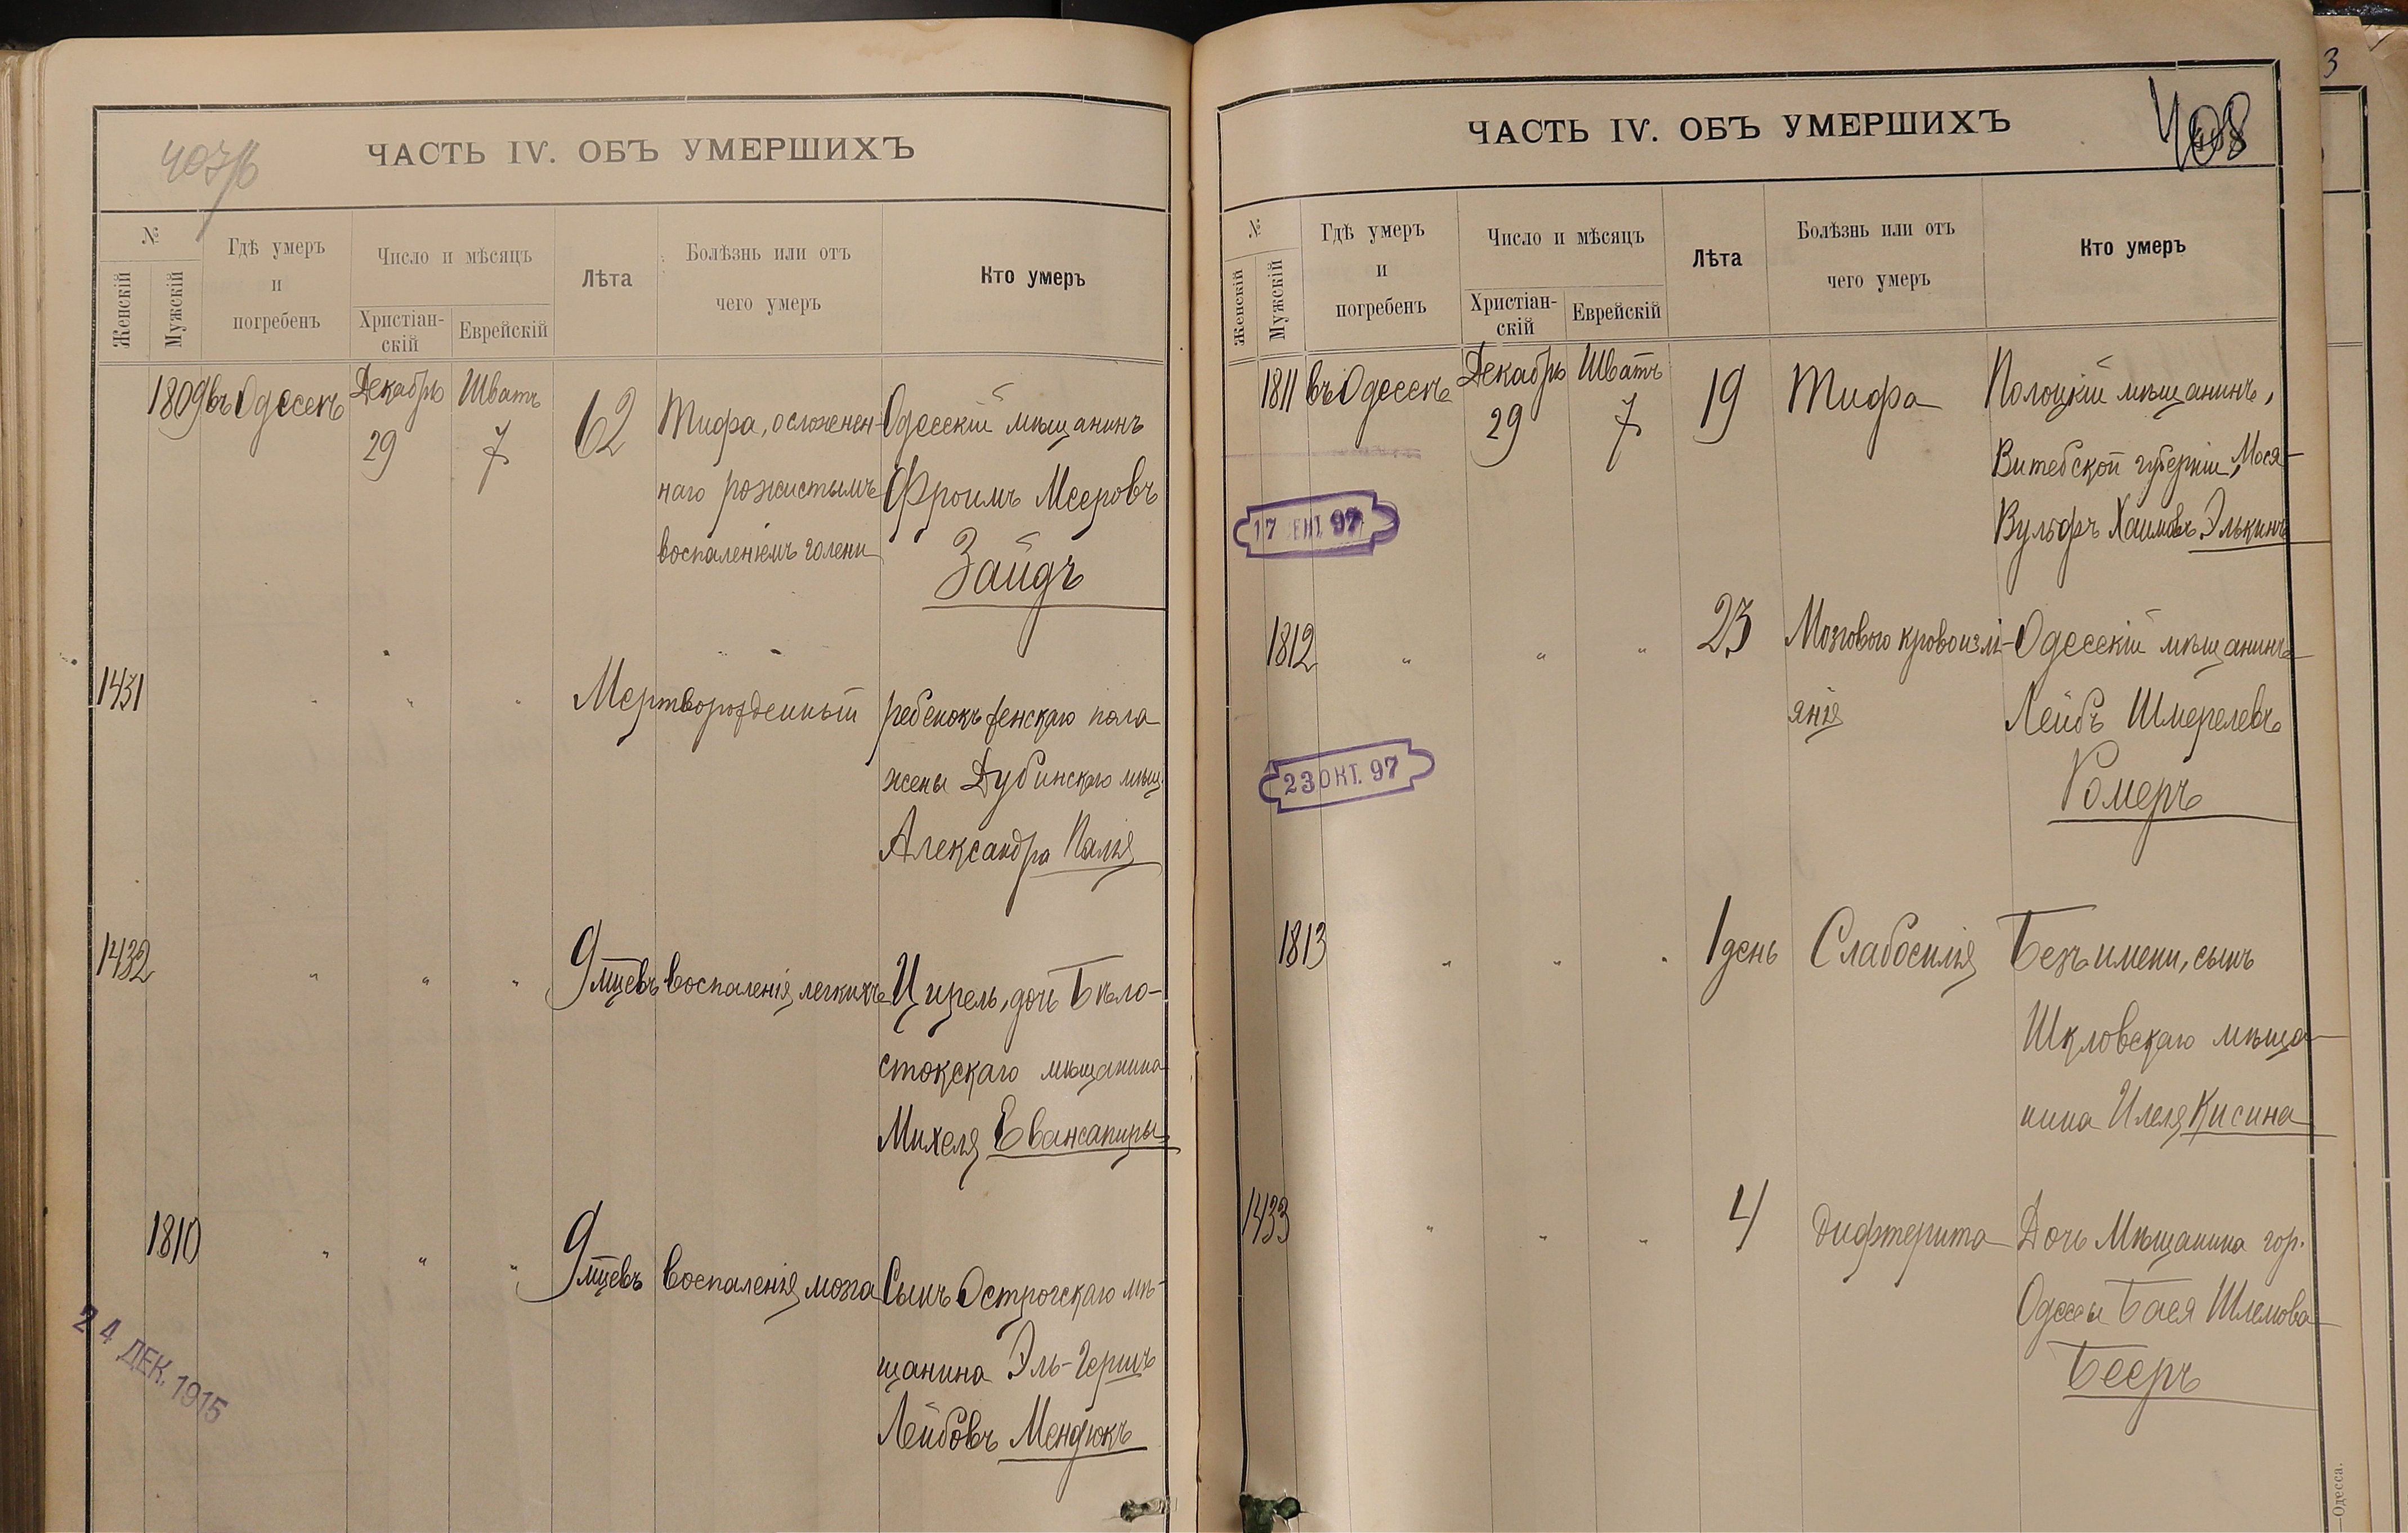 407/б
ЧАСТЬ IV. ОБЪ УМЕРШИХЪ
№
Женскій
Мужскій
Гдѣ умеръ
и
погребенъ
Число и мѣсяцъ
Христіан-
скій
Еврейскій
Лѣта
Болѣзнь или отъ
чего умеръ
Кто умеръ
1809 въ Одессѣ Декабрь Шватъ
29 7
62
Тифа, осложнен-
наго рожистымъ
воспаленіемъ голени
Одесскій мѣщанинъ
Фроимъ Мееровъ
Зайдъ
1431 " " "
Мертворожденный ребенокъ женскаго пола
жены Дубинскаго мѣщ.
Александра Палія
1432 " " "
9 мцевъ воспаленія легкихъ
Цирель, дочь Бѣло-
стокскаго мѣщанина
Михеля
1810 " " "
9 мцевъ воспаленія мозга
Сынъ Острогскаго мѣ-
щанина Эль-Гершъ
Лейбовъ Мендюкъ
24 ДЕК. 1915
3
408
ЧАСТЬ IV. ОБЪ УМЕРШИХЪ
№
Женскій
Мужскій
Гдѣ умеръ
и
погребенъ
Число и мѣсяцъ
Христіан-
скій
Еврейскій
Лѣта
Болѣзнь или отъ
чего умеръ
Кто умеръ
1811 въ Одессѣ Декабрь Шватъ
29 7
19
Тифа
Полоцкій мѣщанинъ,
Витебской губерніи, Мося-
Вульфъ Хаимовъ Элькинъ
17 СЕНТ. 97
1812 " " "
23
Мозгового кровоизлі-
янія
Одесскій мѣщанинъ
Лейбъ Шмерелевъ
Ромеръ
23 ОКТ. 97
1813 " " "
1 день
Слабосилія
Безъ имени, сынъ
Шкловскаго мѣща-
нина Илеля Кисина
1433 " " "
4
Дифтерита
Дочь Мѣщанина гор.
Одессы Бася Шлемова
Бееръ
—Одесса.